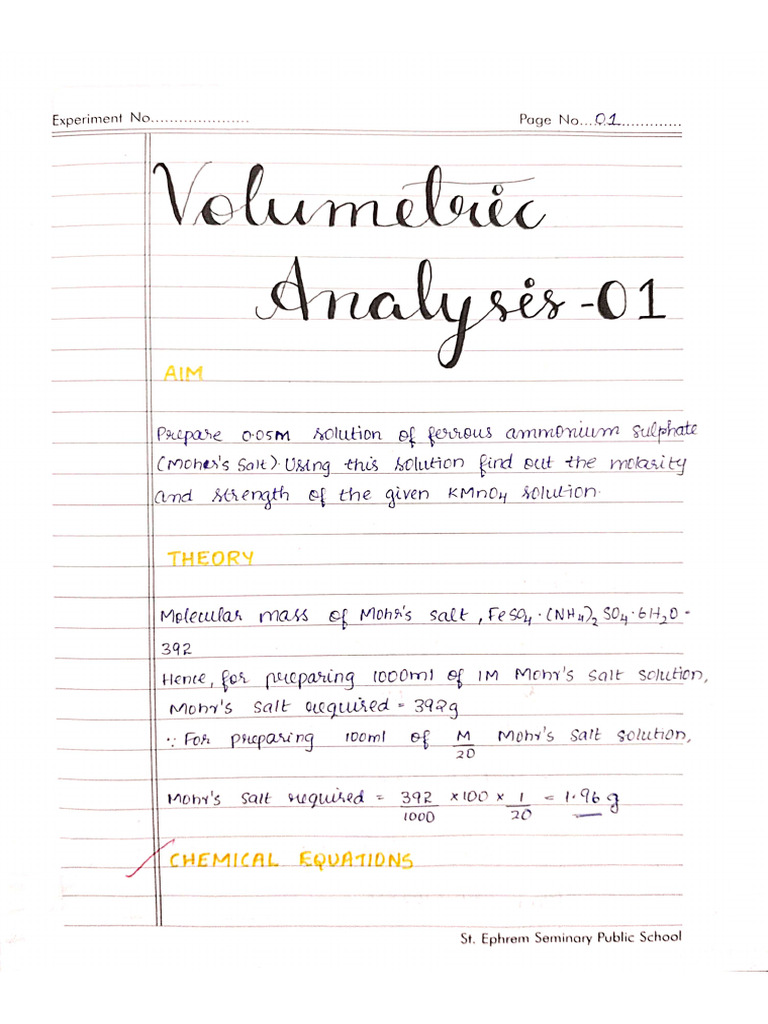 Experiment No.....................
Page No...01.............
Volumetric
Analysis-01
AIM
Prepare 0.05M solution of ferrous ammonium sulphate
(Moher's Salt). Using this solution find out the molarity
and strength of the given KMnO4 solution.
THEORY
Molecular mass of Mohr's salt, FeSO4·(NH4)2SO4·6H2O -
392
Hence, for preparing 1000ml of 1M Mohr's salt solution,
Mohr's salt required = 392g
∵ For preparing 100ml of M/20 Mohr's salt solution,
Mohr's salt required = 392/1000 ×100 × 1/20 = 1.96 g
CHEMICAL EQUATIONS
St. Ephrem Seminary Public School